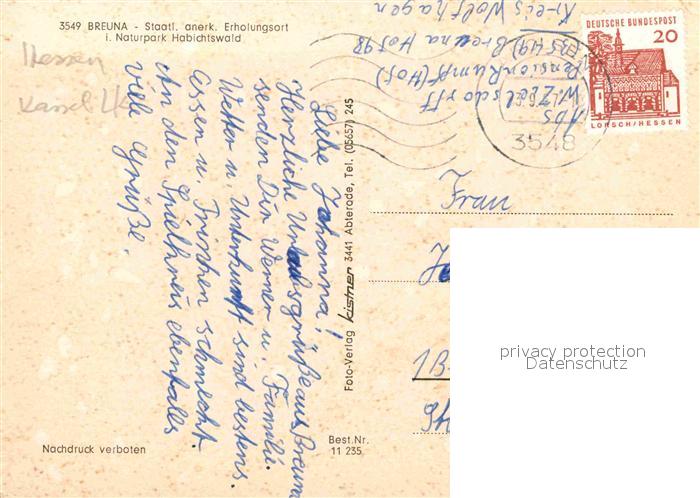 3549 BREUNA - Staatl. anerk. Erholungsort
i. Naturpark Habichtswald
Hessen
Kassel Lk
Liebe Johanna!
Herzliche Urlaubsgrüße aus Breuna
senden Dir Werner u. Familie.
Wetter u. Unterkunft sind bestens.
Essen u. Trinken schmeckt.
An den Spielkreis ebenfalls
viele Grüße.
Foto-Verlag kistner 3441 Abterode, Tel. (05657) 245
Abs
W. Zedelsdorff
Pension Rumpf (Hof)
(3549) Breuna Hof 98
Kreis Wolfhagen
DEUTSCHE BUNDESPOST
20
LORSCH/HESSEN
3548
Frau
1 B
privacy protection
Datenschutz
Nachdruck verboten
Best.Nr.
11 235